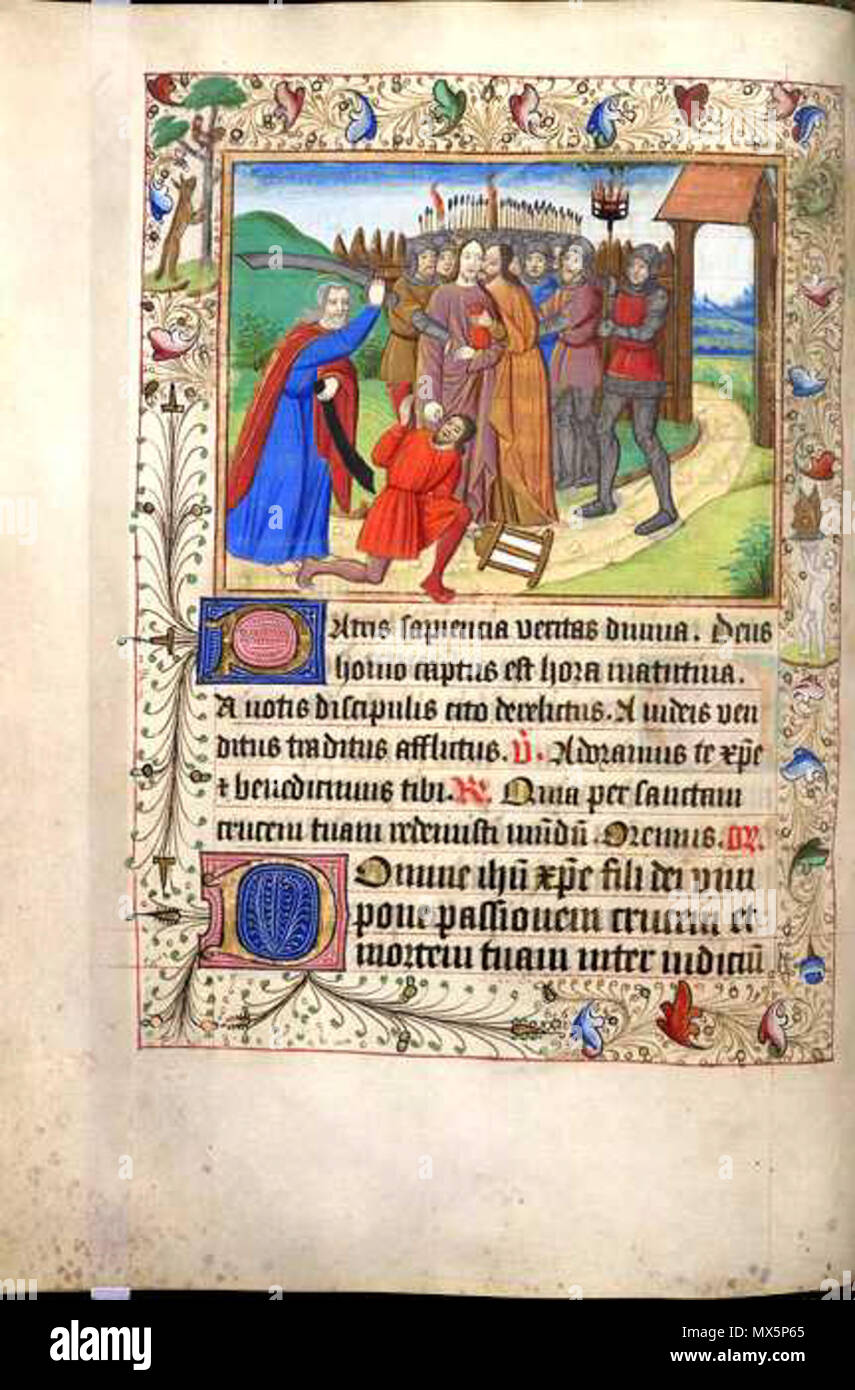 Patris sapiencia veritas divina. Deus
homo captus est hora matutina.
A notis discipulis cito derelictus. A iudeis ven
ditus traditus afflictus. V̄. Adoramus te xp̄e
⁊ benedicimus tibi. R̄. Quia per sanctam
crucem tuam redemisti mūdū. Oremus. or̄.
Domine ihū xp̄e fili dei vivi
pone passionem crucem et
mortem tuam inter iudiciū
alamy
alamy
Image ID: MX5P65
www.alamy.com